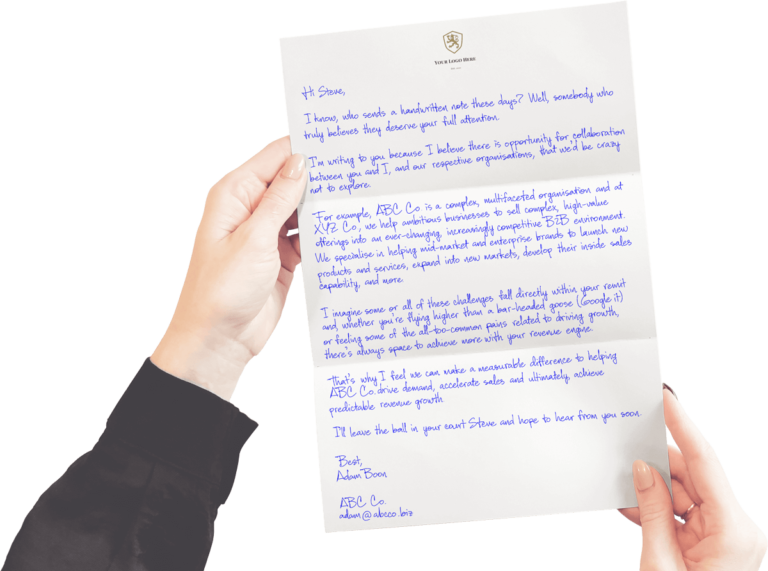 YOUR LOGO HERE
Hi Steve,
I know, who sends a handwritten note these days? Well, somebody who
truly believes they deserve your full attention.
I'm writing to you because I believe there is opportunity for collaboration
between you and I, and our respective organisations, that we'd be crazy
not to explore.
For example, ABC Co. is a complex, multifaceted organisation and at
XYZ Co., we help ambitious businesses to sell complex, high-value
offerings into an ever-changing, increasingly competitive B2B environment.
We specialise in helping mid-market and enterprise brands to launch new
products and services, expand into new markets, develop their inside sales
capability, and more.
I imagine some or all of these challenges fall directly within your remit
and, whether you're flying higher than a bar-headed goose (Google it)
or feeling some of the all-too-common pains related to driving growth,
there's always space to achieve more with your revenue engine.
That's why I feel we can make a measurable difference to helping
ABC Co. drive demand, accelerate sales and ultimately, achieve
predictable revenue growth.
I'll leave the ball in your court Steve and hope to hear from you soon.
Best,
Adam Boon
ABC Co.
adam@abcco.biz